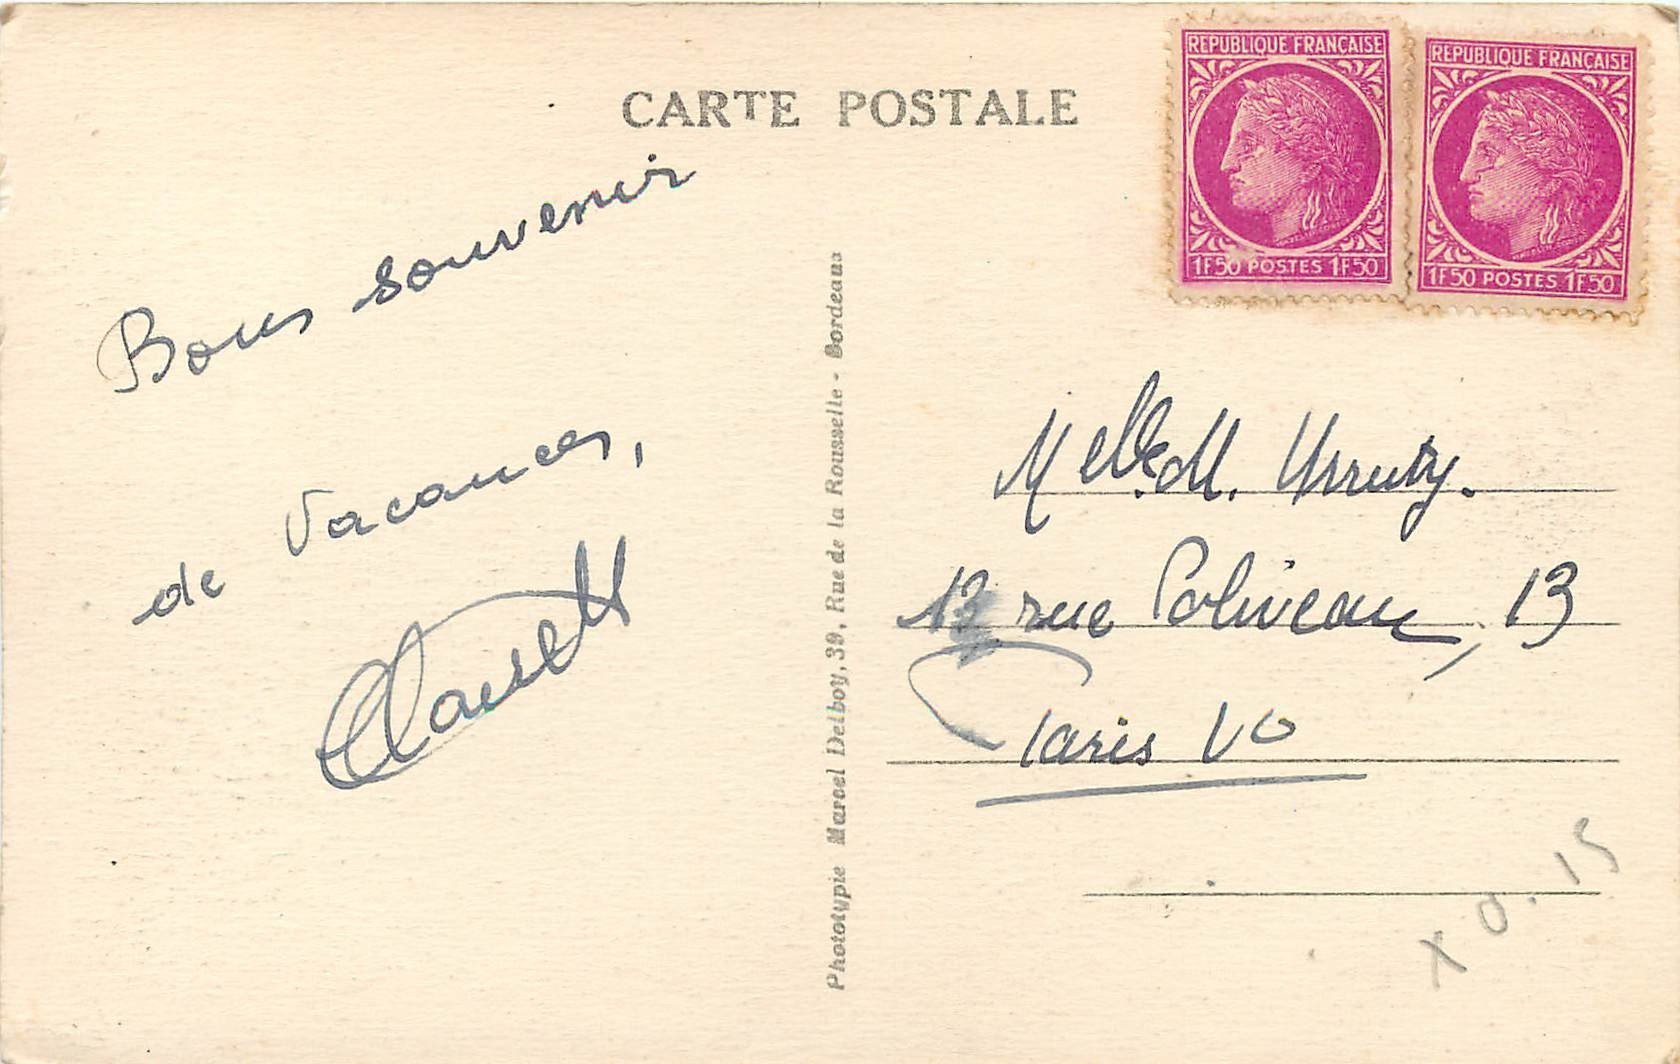 CARTE POSTALE
REPUBLIQUE FRANÇAISE
1F50 POSTES 1F50
REPUBLIQUE FRANÇAISE
1F50 POSTES 1F50
Bons souvenir
de vacances,
Phototypie Marcel Delboy, 39, Rue de la Rousselle - Bordeaux
Melle. M. Urruty.
13 rue Poliveau, 13
Paris Vo
X 0.15